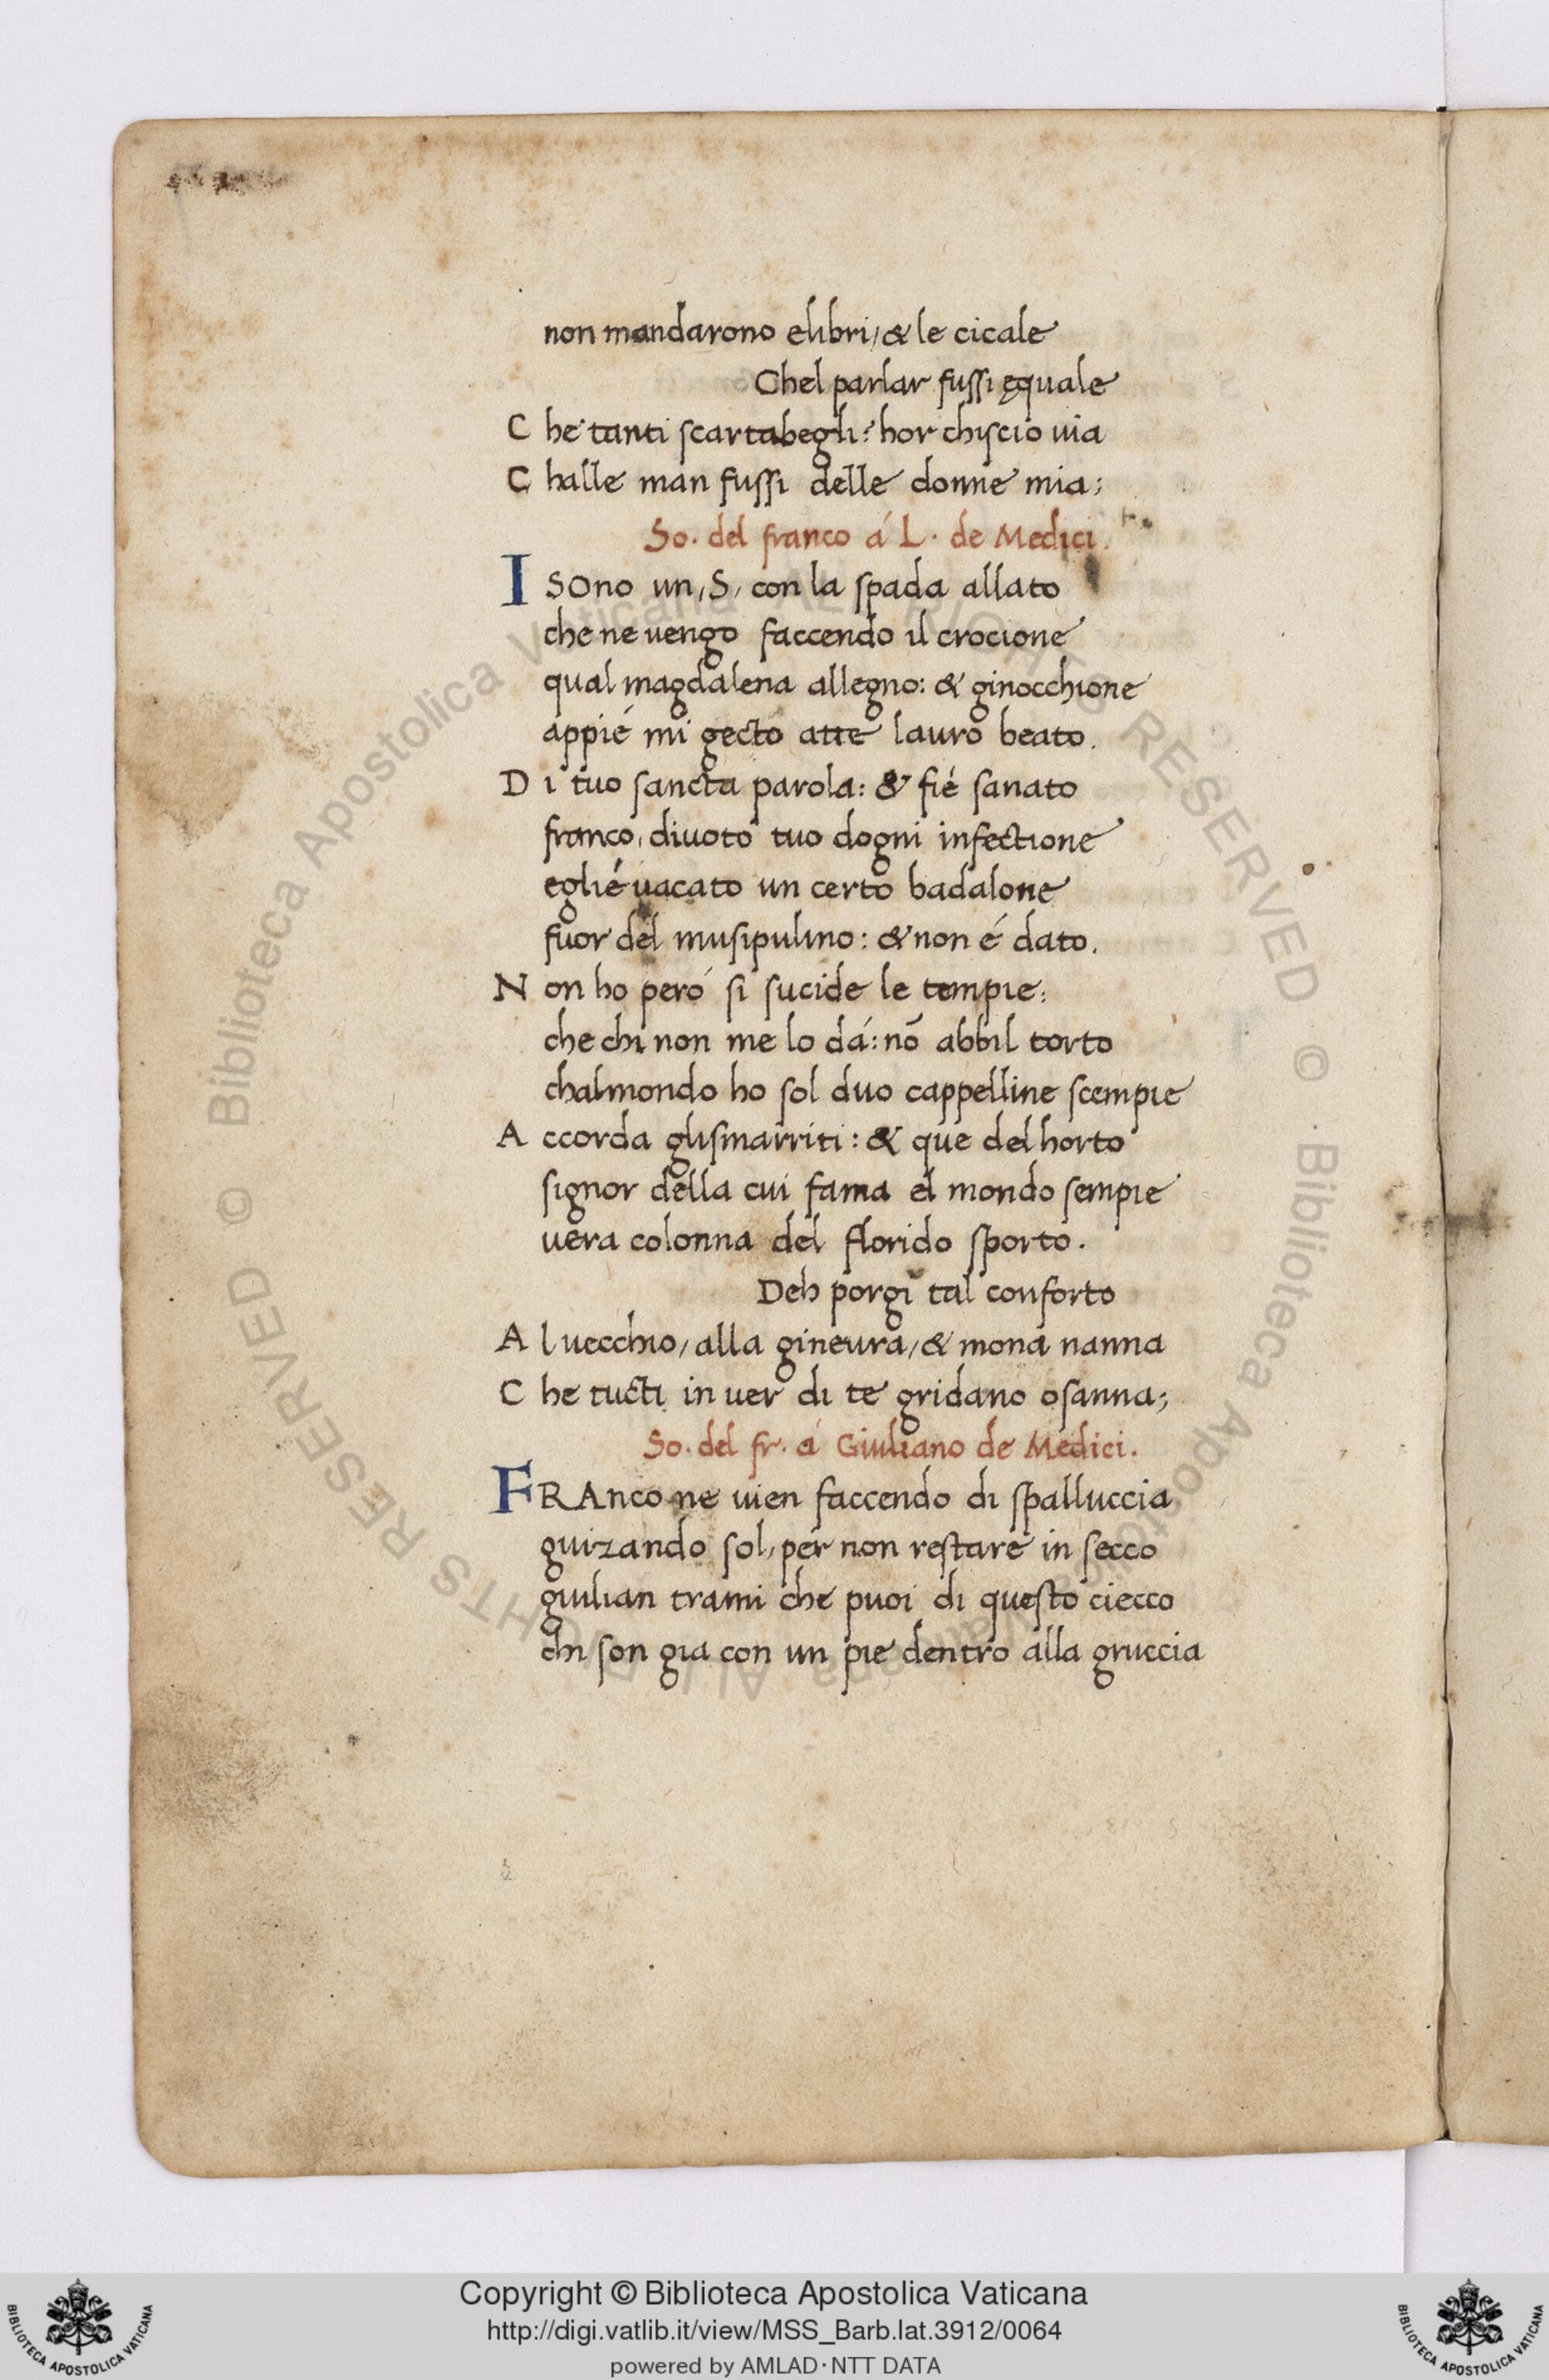 non mandarono elibri/& le cicale
Chel parlar fussi ęquale
C he tanti scartabegli? hor chiscio uia
C halle man fussi delle donne mia;
So. del franco á L. de Medici.
I sono un, S, con la spada allato
che ne uengo faccendo il crocione
qual magdalena allegno: & ginocchione
appié mi gecto atte lauro beato.
D i tuo sancta parola: & fié sanato
franco, diuoto tuo dogni infectione
eglié uacato un certo badalone
fuor del musipulino: & non é dato.
N on ho peró si sucide le tempie:
che chi non me lo dá: nō abbil torto
chalmondo ho sol duo cappelline scempie
A ccorda glismarriti: & que del horto
signor della cui fama el mondo sempie
uera colonna del florido sporto.
Deh porgi tal conforto
A l uecchio/alla gineura/& mona nanna
C he tucti in uer di te gridano osanna;
So. del fr. á Giuliano de Medici.
FRAnco ne uien faccendo di spalluccia
guizando sol, per non restare in secco
giulian trami che puoi di questo ciecco
chi son gia con un pie dentro alla gruccia
© Biblioteca Apostolica Vaticana ALL RIGHTS RESERVED © Biblioteca Apostolica Vaticana ALL RIGHTS RESERVED
Copyright © Biblioteca Apostolica Vaticana
http://digi.vatlib.it/view/MSS_Barb.lat.3912/0064
powered by AMLAD·NTT DATA
BIBLIOTECA APOSTOLICA VATICANA
BIBLIOTECA APOSTOLICA VATICANA